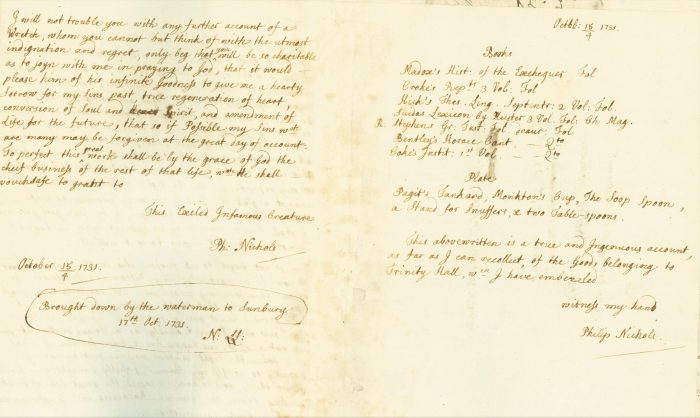 I will not trouble you with any further account of a
Wretch, whom you cannot but think of with the utmost
indignation and regret, only beg that you will be so charitable
as to joyn with me in praying to God, that it would
please him of his infinite Goodness to give me a hearty
Sorrow for my Sins past, true regeneration of heart,
conversion of Soul and Spirit, and amendment of
Life for the future, that so if Possible my Sins wch
are many may be forgiven at the great day of account.
To perfect this great work shall be by the grace of God the
cheif business of the rest of that life, wch He shall
vouchsafe to grant to
This Exiled Infamous Creature
Ph: Nichols
October 15/4 1731.
Brought down by the waterman to Sunbury
17th Oct. 1731.
N: Ll:
Octbb: 15/4 1731.
Books
Madox's Hist: of the Exchequer Fol
Cooke's Repts 3 Vol: Fol
Hick's Thes: Ling. Septentr: 2 Vol: Fol.
Suidas Lexicon by Kuster 3 Vol: Fol: Ch. Mag.
R. Stephens Gr. Test: Fol Fol
Bentley's Horace Cant — Qto
Coke's Instit: 1st Vol — Qto
Plate
Pagit's Tankard, Monkton's Cup, The Soop Spoon,
a Stand for Snuffers, & two Table-spoons.
This abovewritten is a true and Ingenuous account,
as far as I can recollect of the Goods belonging to
Trinity Hall, wch I have embezeled
witness my hand
Philip Nichols.